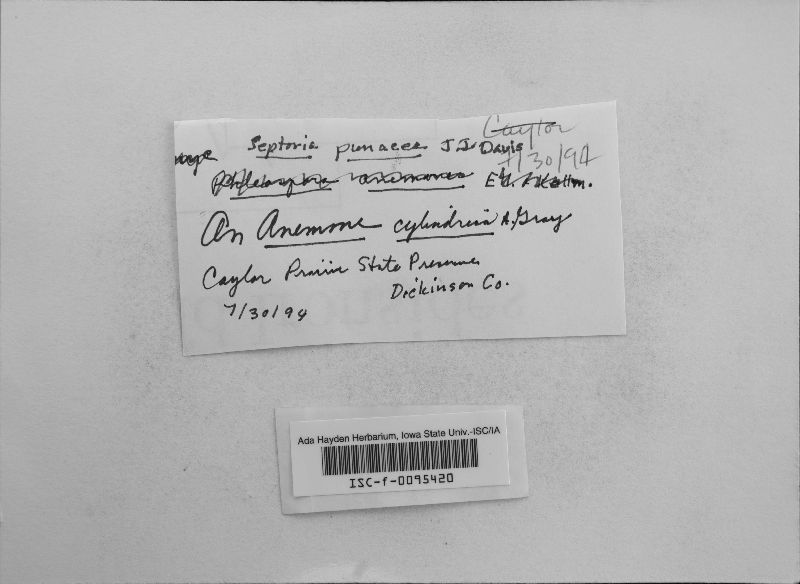 Caylor
Septoria punacea J.J. Davis
7/30/94
anemones
An Anemone cylindrica A. Gray
Caylor Prairie State Preserve
Dickinson Co.
7/30/94
Ada Hayden Herbarium, Iowa State Univ.-ISC/IA
ISC-f-0095420